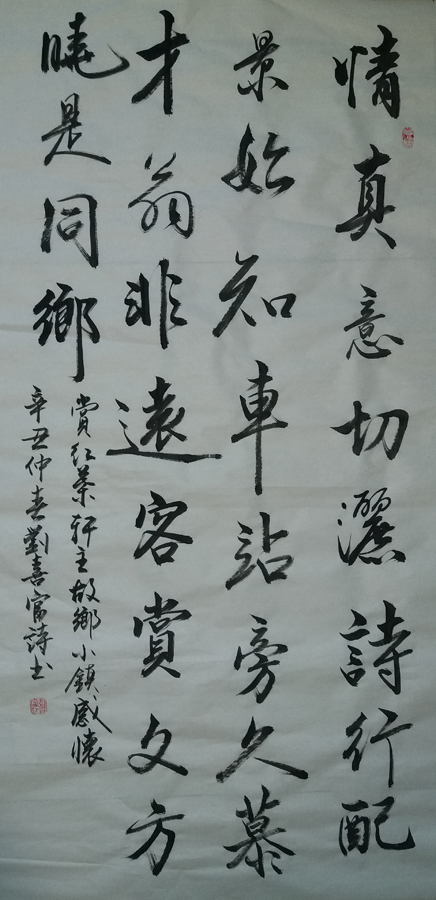 情真意切灑詩行配
景始知車站旁久慕
才翁非遠客賞文方
曉是同鄉
賞紅葉軒主故鄉小鎮感懷
辛丑仲春劉喜富詩书